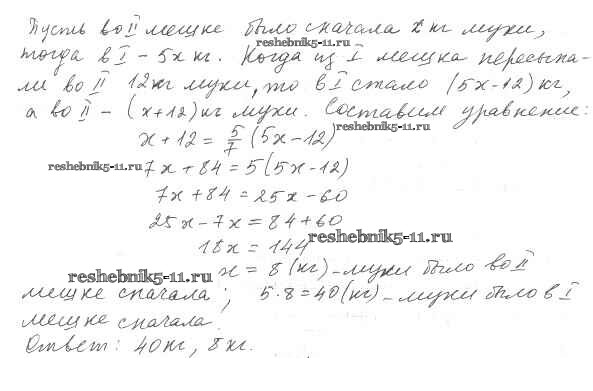 Пусть во II мешке было сначала x кг муки,
reshebnik5-11.ru
тогда в I – 5x кг. Когда из I мешка пересыпа-
ли во II 12 кг муки, то в I стало (5x-12) кг,
а во II – (x+12) кг муки. Составим уравнение:
x + 12 = 5/7 (5x-12) reshebnik5-11.ru
reshebnik5-11.ru 7x + 84 = 5(5x-12)
7x + 84 = 25x - 60
25x - 7x = 84 + 60
18x = 144 reshebnik5-11.ru
reshebnik5-11.ru x = 8 (кг) – муки было во II
мешке сначала; 5·8=40 (кг) – муки было в I
мешке сначала.
Ответ: 40 кг, 8 кг.